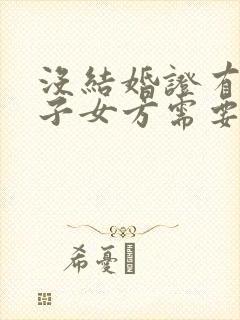 沒結婚證有
子女方需要
希憂